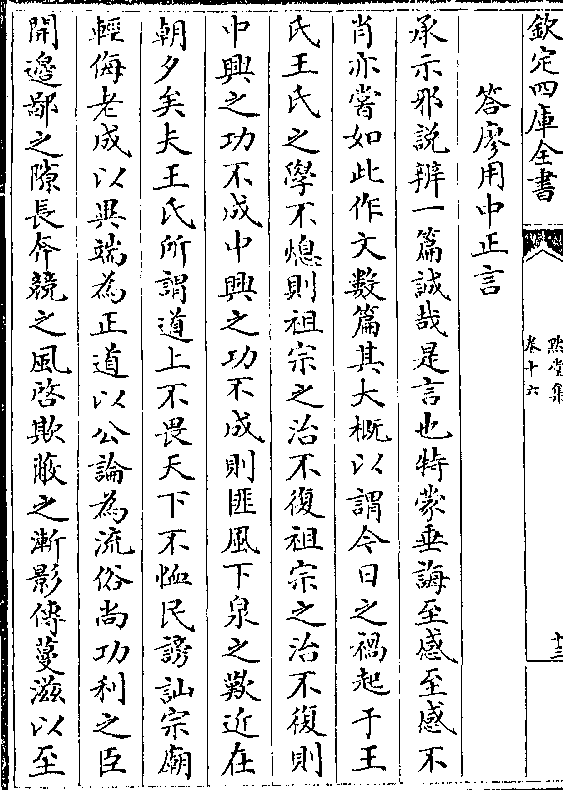 欽定四庫全書
默堂集
卷十六
十三
答廖用中正言
承示邪說辨一篇誠哉是言也特蒙垂誨至感至感不
肖亦嘗如此作文數篇其大概以謂今日之禍起于王
氏王氏之學不熄則祖宗之治不復祖宗之治不復則
中興之功不成中興之功不成則匪風下泉之歎近在
朝夕矣夫王氏所謂道上不畏天下不恤民謗訕宗廟
輕侮老成以異端為正道以公論為流俗尚功利之臣
開邊鄙之隙長奔競之風啓欺蔽之漸影傳蔓滋以至